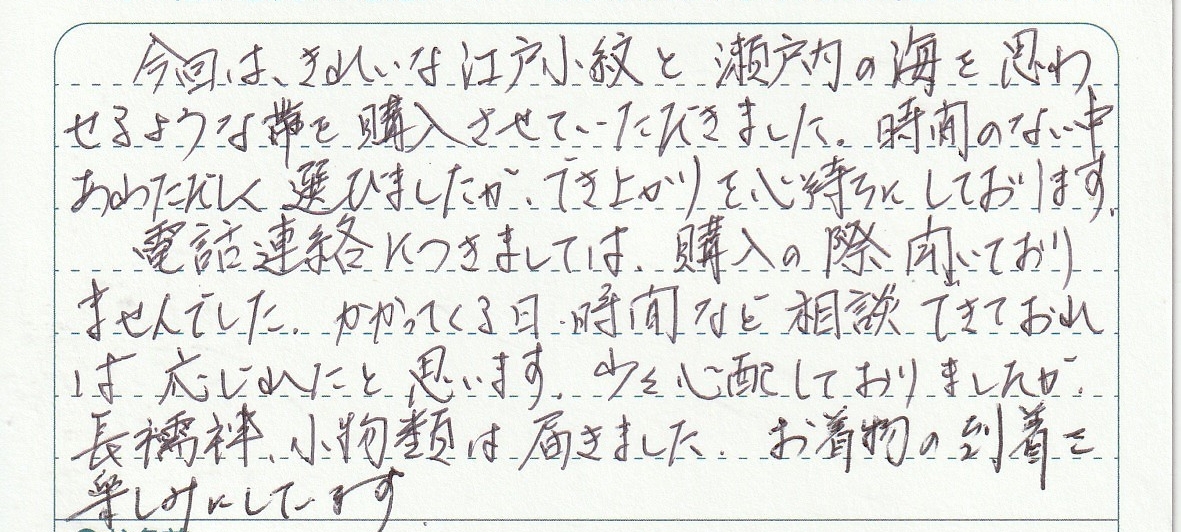 今回は、きれいな江戸小紋と瀬戸内の海を思わ
せるような帯を購入させていただきました。時間のない中
あわただしく選びましたが、でき上がりを心待ちにしております。
電話連絡につきましては、購入の際聞いており
ませんでした。かかってくる日、時間など相談できておれ
ば応じれたと思います。少々心配しておりましたが、
長襦袢、小物類は届きました。お着物の到着を
楽しみにしています。